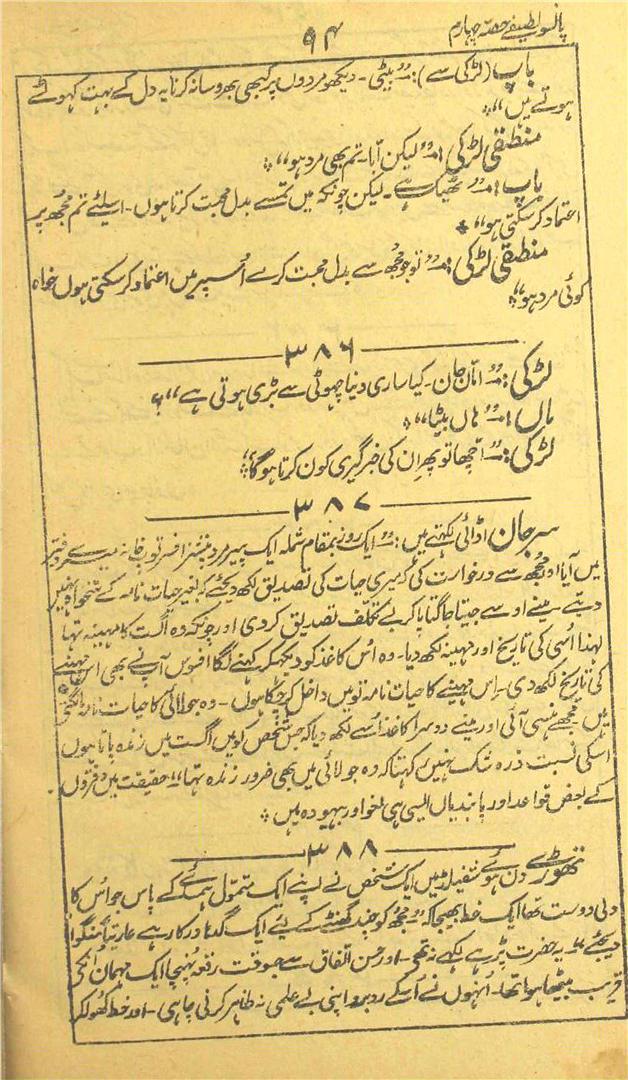 پانسو لطیفے حصہ چہارم
۹۴
باپ (لڑکی سے):۔ "بیٹی۔ دیکھو مردوں پر کبھی بھروسا نہ کرنا یہ دل کے بہت کھوٹے
ہوتے ہیں"*
منطقی لڑکی:۔ "لیکن ابّا۔ تم بھی مرد ہو"*
باپ:۔ "ٹھیک ہے۔ لیکن چونکہ میں تمسے بدل محبت کرتا ہوں۔ اسلیئے تم مجھ پر
اعتماد کر سکتی ہو"*
منطقی لڑکی:۔ "تو جو مجھ سے بدل محبت کرے اُسپر میں اعتماد کر سکتی ہوں خواہ
کوئی مرد ہو"*
۳۸۶
لڑکی:۔ "امّاں جان۔ کیا ساری دنیا چھوٹی سے بڑی ہوتی ہے"؟
ماں:۔ "ہاں بیٹا"*
لڑکی:۔ "اچھا تو پھر ان کی خبرگیری کون کرتا ہوگا"*
۳۸۷
سرجان اڈائی لکھتے ہیں:۔ "ایک روز بمقام شملہ ایک پیر مرد پنشنر افسر توپخانہ میرے دفتر
میں آیا اور مجھ سے درخواست کی کہ میری حیات کی تصدیق لکھ دیجئے کہ بغیر حیات نامہ کے تنخواہ نہیں
دیتے۔ مینے اوسے جیتا جاگتا پا کر بے تکلف تصدیق کر دی اور چونکہ وہ اگست کا مہینہ تھا
لہذا اُسی کی تاریخ اور مہینہ لکھ دیا۔ وہ اُس کاغذ کو دیکھ کر کہنے لگا افسوس آپ نے بھی اس مہینے
کی تاریخ لکھ دی۔ اِس مہینے کا حیات نامہ تو میں داخل کر چکا ہوں۔ وہ جولائی کا حیات نامہ مانگتے
ہیں۔ مجھے ہنسی آئی اور مینے دوسرا کاغذ اُسے لکھ دیا کہ جس شخص کو میں اگست میں زندہ پاتا ہوں
اسکی نسبت ذرہ شک نہیں کہتا کہ وہ جولائی میں بھی ضرور زندہ تھا" حقیقت میں دفتروں
کے بعض قواعد اور پابندیاں ایسی ہی لغو اور بیہودہ ہیں*
۳۸۸
تھوڑے دن ہوئے ایک شخص نے اپنے ایک متموّل ہمسائے کے پاس جو اُس کا
دلی دوست تھا ایک خط بھیجا کہ "مجھ کو چند گھنٹے کے لیے ایک گدھا درکار ہے عاریتاً منگوا
دیجئے" یہ حضرت پڑھے لکھے نہ تھے۔ اور حُسن اتفاق سے جسوقت رقعہ پُہنچا ایک مہمان اُنکے
قریب بیٹھا ہوا تھا۔ اُنہوں نے اُسکے روبرو اپنی بے علمی نہ ظاہر کرنی چاہی۔ اور خط کھولکر